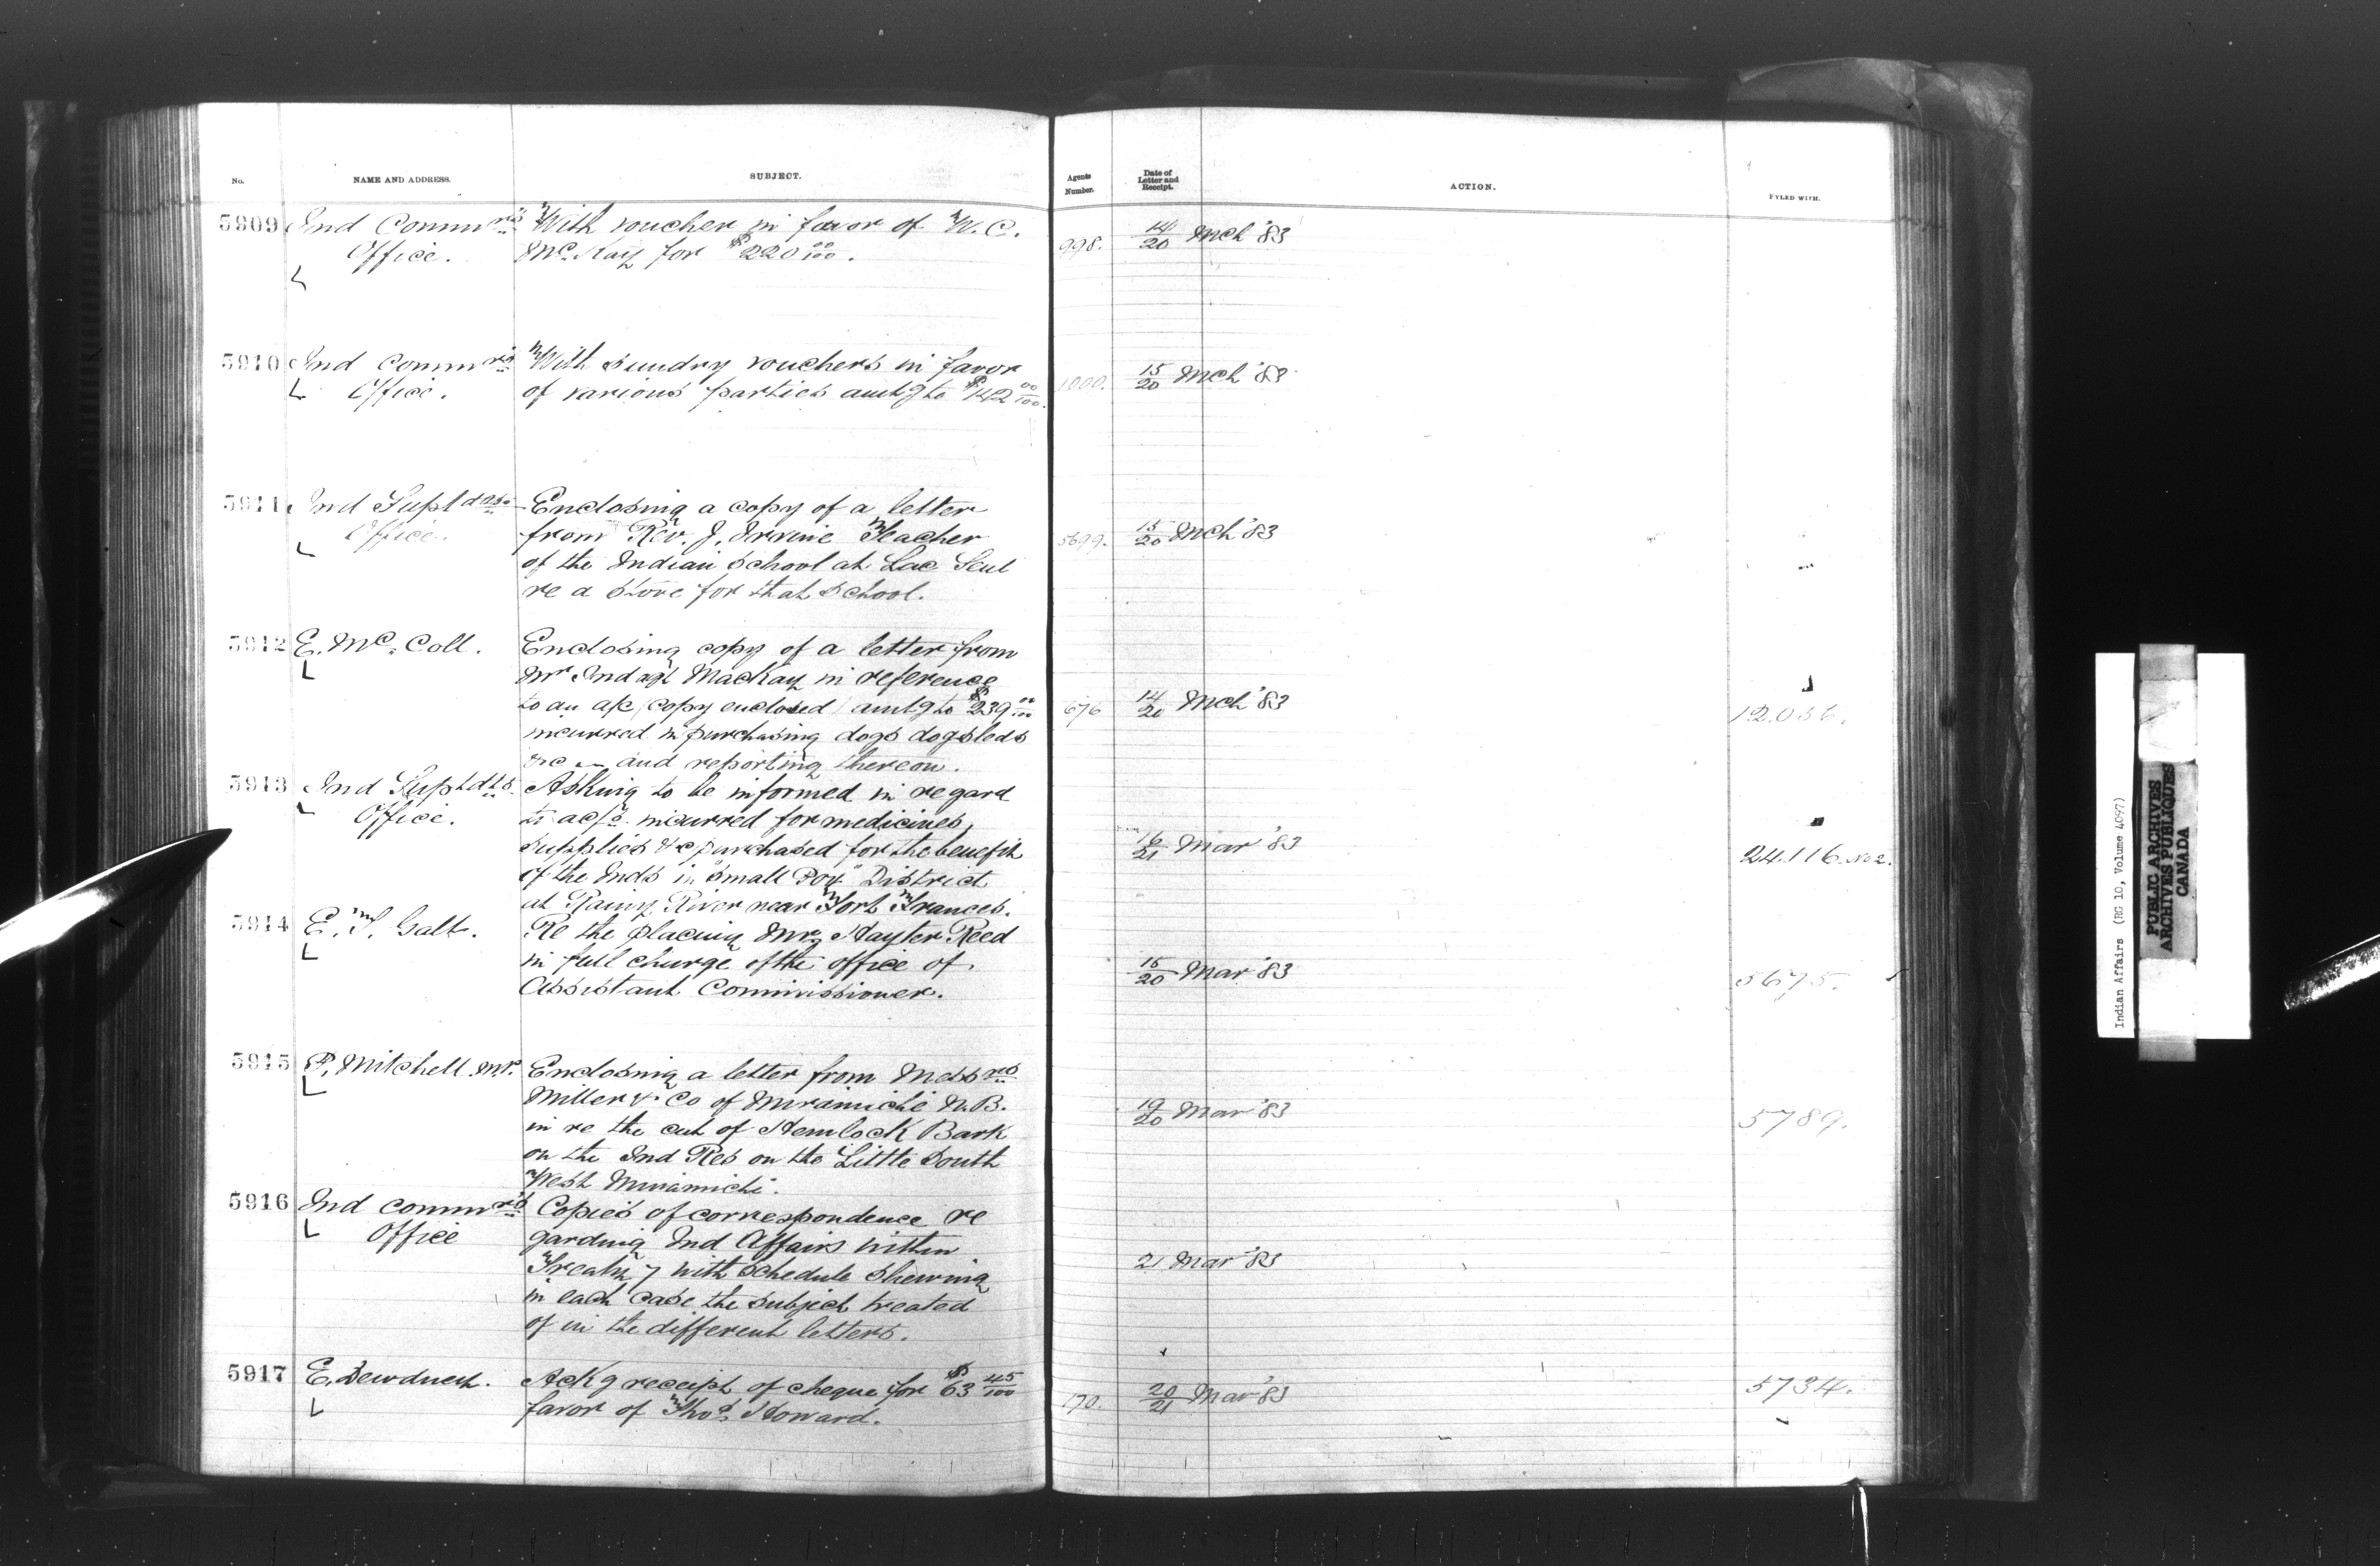 No.
NAME AND ADDRESS.
SUBJECT.
Agents
Number.
Date of
Letter and
Receipt.
ACTION.
FYLED WITH.
5909 Ind Commrs
Office.
With voucher in favor of W. C.
McKay for $220 00/100.
998.
14/20 Mch '83
5910 Ind Commrs
Office.
With sundry vouchers in favor
of various parties amtg to $142 00/100.
1000.
15/20 Mch '83
5911 Ind Suptdts
Office.
Enclosing a copy of a letter
from Rev. J. Irvine Teacher
of the Indian School at Lac Seul
re a stove for that school.
5699.
15/20 Mch '83
5912 E. Mc Coll.
Enclosing copy of a letter from
Mr Ind agt MacKay in reference
to an a/c (copy enclosed) amtg to $239 00/100
incurred in purchasing dogs dogsleds
&c and reporting thereon.
676
14/20 Mch '83
12.056.
5913 Ind Suptdts
Office.
Asking to be informed in regard
to ac/s incurred for medicines,
supplies &c purchased for the benefit
of the Inds in "Small Pox" District
at Rainy River near Fort Frances.
16/21 Mar '83
24.116. No 2.
5914 E. T. Galt.
Re the placing Mr Hayter Reed
in full charge of the office of
Assistant Commissioner.
15/20 Mar '83
5675.
5915 P. Mitchell. M.P.
Enclosing a letter from Messrs
Miller & Co of Miramichi N.B.
in re the cut of Hemlock Bark
on the Ind Res on the Little South
West Miramichi.
19/20 Mar '83
5789.
5916 Ind Commrs
Office
Copies of correspondence re
garding Ind Affairs within
Treaty 7 with schedule shewing
in each case the subject treated
of in the different letters.
21 Mar '83
5917 E. Dewdney.
Ackg receipt of cheque for $63 45/100
favor of Thos Howard.
170.
20/21 Mar '83
5734.
Indian Affairs (RG 10, Volume 4097)
PUBLIC ARCHIVES
ARCHIVES PUBLIQUES
CANADA